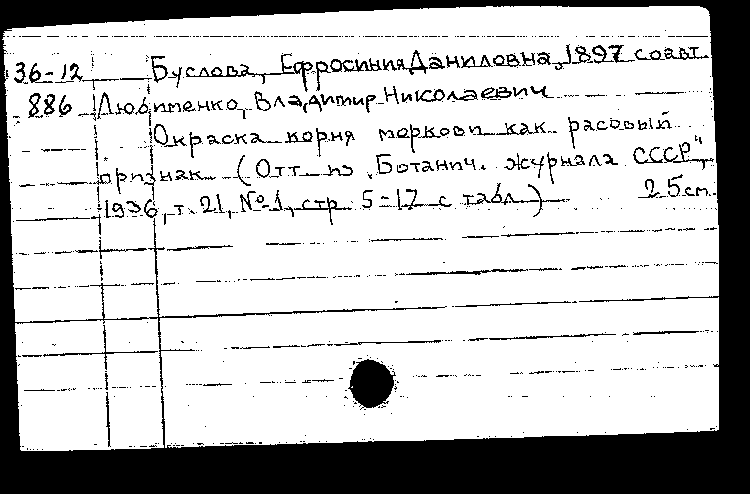 36-12 Буслова, Ефросиния Даниловна, 1897 соавт.
886 Любименко, Владимир Николаевич
Окраска корня моркови как расовый
признак (Отт. из „Ботанич. журнала СССР",
1936, т. 21, № 1, стр. 5-17 с табл.) 25 см.